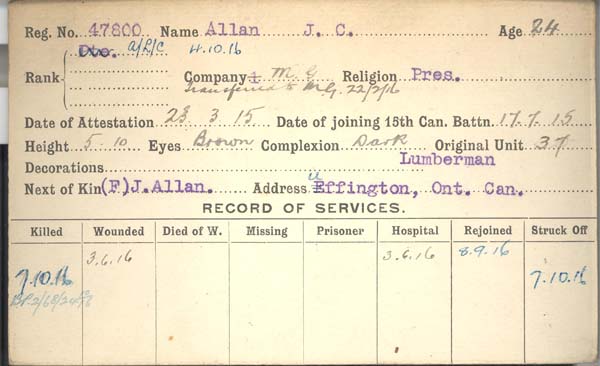 Reg. No. 47800 Name Allan J. C. Age 24
Pte. A/L/C 4.10.16
Rank Company 1 M. G Religion Pres.
Transferred to M.G. 22/2/16
Date of Attestation 23 3 15 Date of joining 15th Can. Battn. 17.7.15
Height 5-10 Eyes Brown Complexion Dark Original Unit 37
Decorations Lumberman
Next of Kin (F) J. Allan. Address Effington, Ont. Can.
RECORD OF SERVICES.
Killed Wounded Died of W. Missing Prisoner Hospital Rejoined Struck Off
3.6.16 3.6.16 8.9.16
7.10.16 7.10.16